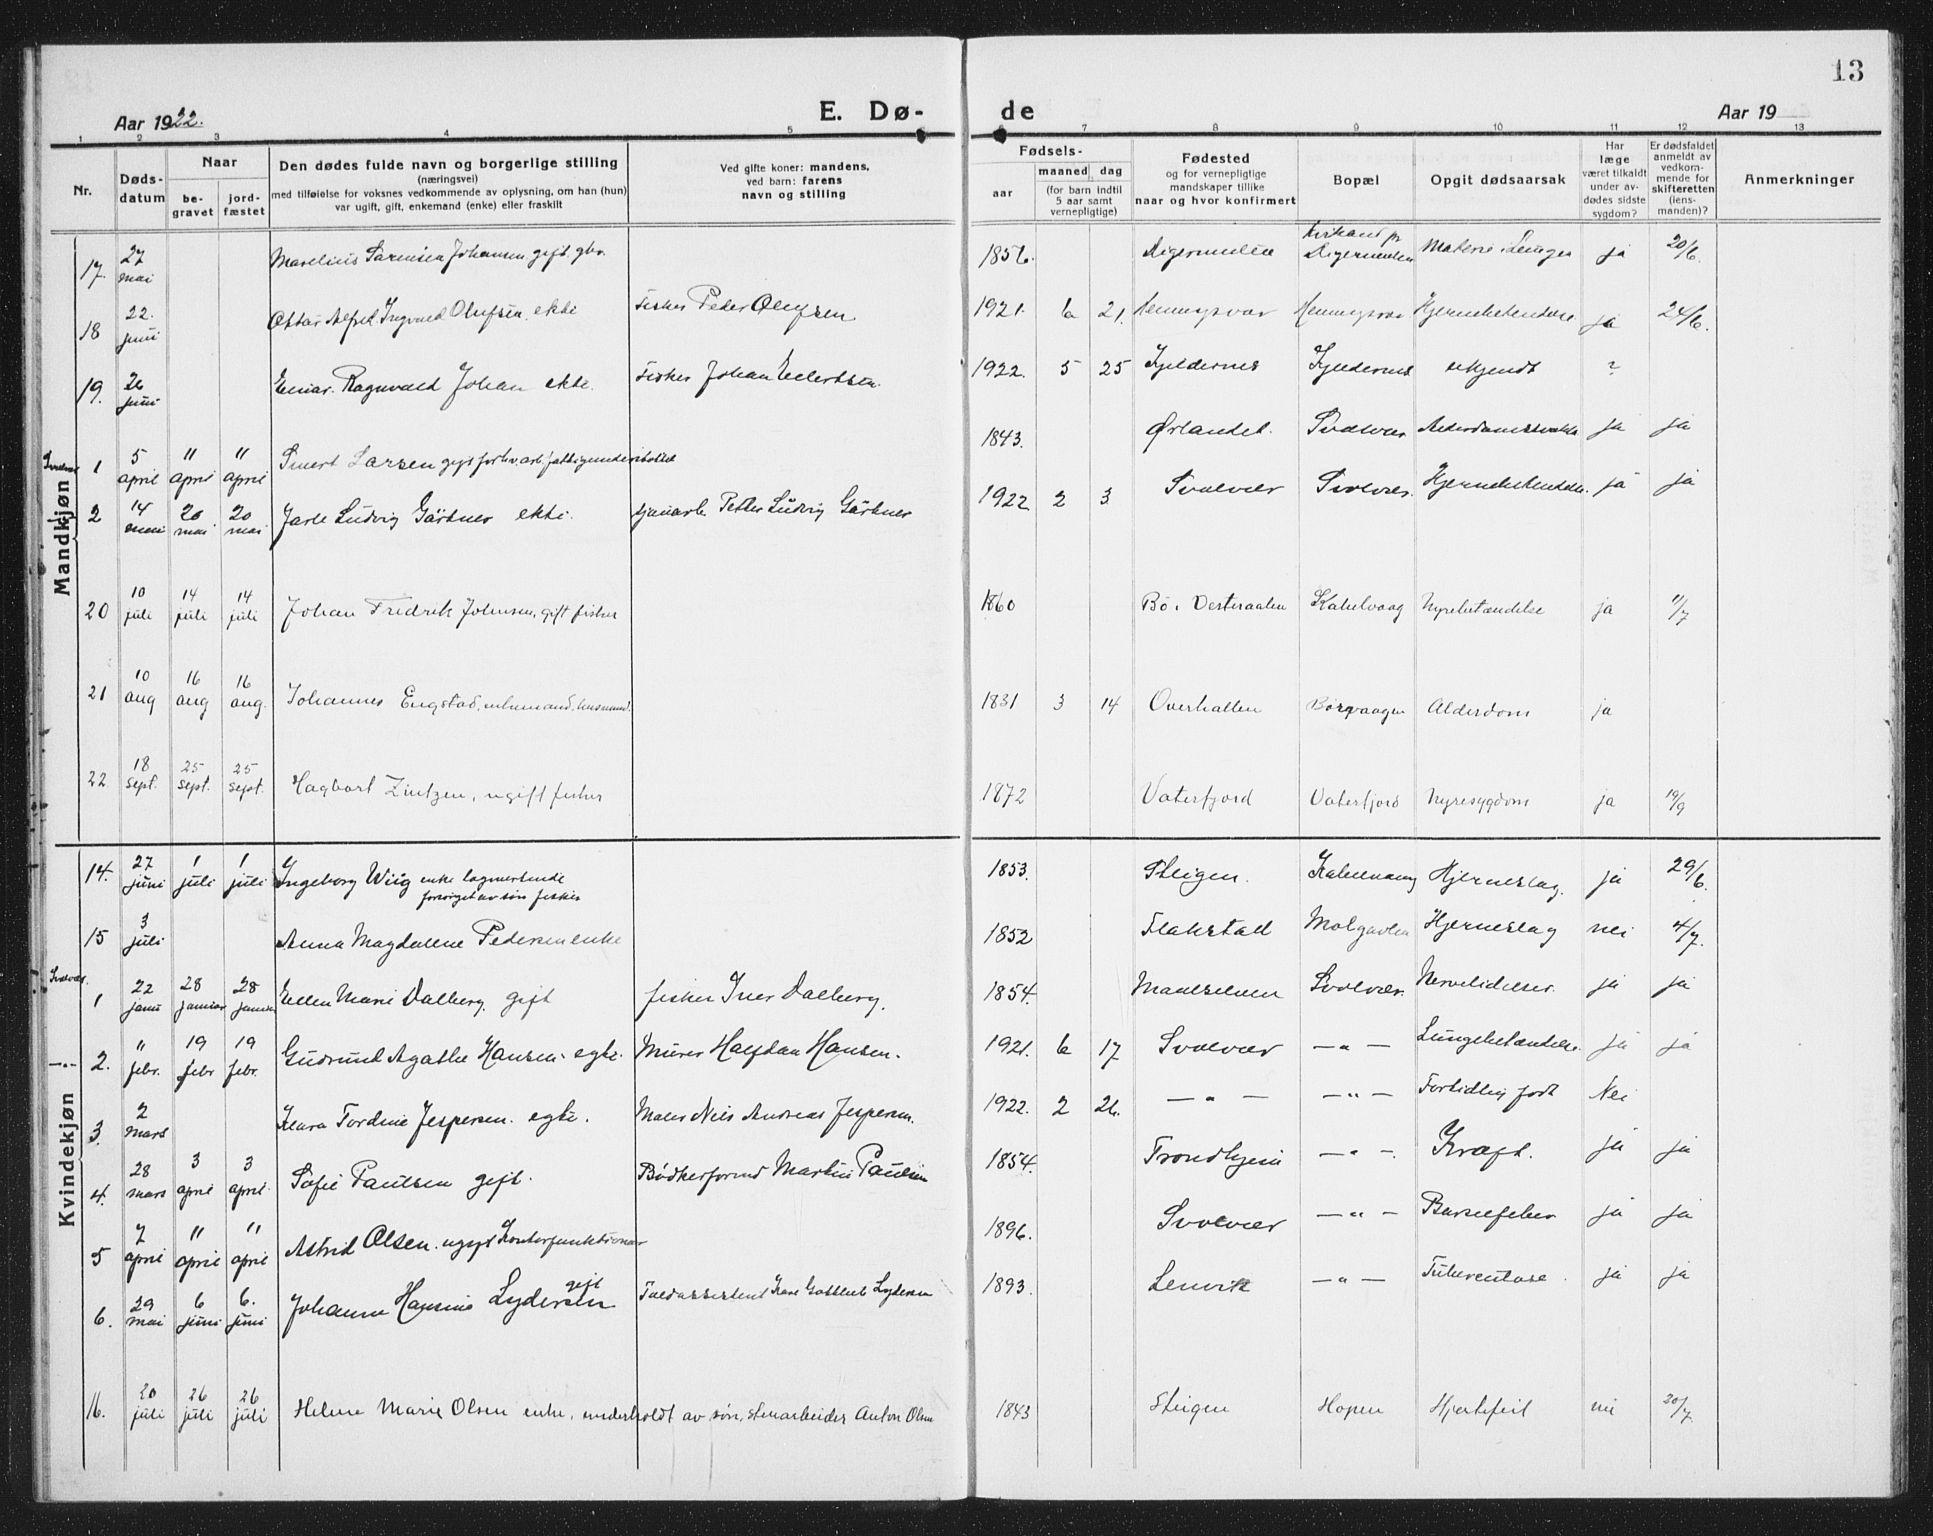 13
Aar 1922.
E. Dø-
de
Aar 19
1 2 3 4 5 6 7 8 9 10 11 12 13
Nr.
Døds-
datum
Naar
be-
gravet
jord-
fæstet
Den dødes fulde navn og borgerlige stilling
(næringsvei)
med tilføielse for voksnes vedkommende av oplysning, om han (hun)
var ugift, gift, enkemand (enke) eller fraskilt
Ved gifte koner: mandens,
ved barn: farens
navn og stilling
Fødsels-
aar
maaned dag
(for barn indtil
5 aar samt
vernepligtige)
Fødested
og for vernepligtige
mandskaper tillike
naar og hvor konfirmert
Bopæl
Opgit dødsaarsak
Har
læge
været tilkaldt
under av-
dødes sidste
sygdom?
Er dødsfaldet
anmeldt av
vedkom-
mende for
skifteretten
(lens-
manden)?
Anmerkninger
Mandkjøn
17. 27 mai Marelius Sørensen Johansen gift gbr. 1856. Digermulen Digermulen ja 20/6.
18 22. juni Ottar Alfred Ingvald Olufsen. ekte Fisker Peder Olufsen 1921. 6 21. Henningsvær Henningsvær Hjernebetændelse ja 24/6.
19. 26 juni Einar Ragnvald Johan ekte. Fisker Johan Eilertsen. 1922. 5 25 Kjeldernes Kjeldernes ukjendt ?
Svolvær 1 5 april 11 april 11 april Sivert Larsen gift forhv. arb. fattigunderstøttet 1843. Ørlandet. Svolvær Alderdomssvakhet ja ja
2 14 mai 20 mai 20 mai Jarle Ludvig Gärtner ekte. Petter Ludvig Gärtner 1922 2 3 Svolvær Svolvær. Hjernebetændelse. ja ja
20 10 juli 14 juli 14 juli Johan Fredrik Johnsen, gift fisker 1860 Bø i Vesteraalen Kabelvaag Nyrebetændelse ja 11/7
21 10 aug 16 aug 16 aug. Johannes Engstad, enkemand, husmand. 1831 3 14 Overhallen Børvaagen Alderdom ja
22 18 sept. 25 sept. 25 sept. Hagbart Zintzen, ugift fisker 1872 Vaterfjord Vaterfjord Nyresygdom ja 19/9
Kvindekjøn
14. 27 juni 1 juli 1 juli Ingeborg Wiig enke lægmersende
forsørget av søn fisker 1853. Steigen. Kabelvaag Hjerneslag. ja 29/6.
15 3 juli Anna Magdalene Pedersen enke 1852 Flakstad Molgavlen Hjerneslag nei 4/7.
Svolvær. 1 22 janu 28 januar 28 januar Ellen Marie Dalberg. gift fisker Iver Dalberg. 1854. Maalselven Svolvær. Nervelidelser. ja ja
—"— 2. 11 febr. 19 febr 19 febr. Gudrund Agathe Hansen. egte. Murer Halfdan Hansen. 1921. 6 17 Svolvær —"— Lungebetændelse. ja ja
3. 2 mars Klara Tordine Jespersen. egte. Maler Nils Andreas Jespersen. 1922. 2 26. —"— —"— Fortidlig født Nei
4. 28 mars 3 april 3 april. Sofie Paulsen gift. Bødkerformd Martin Paulsen 1854. Trondhjem —"—. Kræft. ja ja
5 7 april 11 april 11 april Astrid Olsen. ugift Kontorfunktionær 1896. Svolvær —"— Barselfeber ja ja
6. 29 mai 6 juni 6. juni Johanne Hansine Lydersen gift Toldassistent Kare Gottlieb Lydersen 1893. Lenvik —"— Tuberculose. ja ja
16. 20 juli 26 juli 26 juli Helene Marie Olsen enke, underholdt av søn, stenarbeider Anton Olsen 1843 Steigen Hopen Hjertefeil nei 20/7.